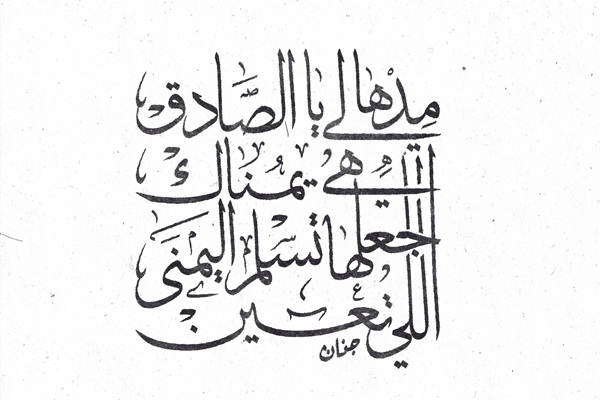 مدها لي يا الصادق
اللّي هي يمناك
اجعلها تسلم اليمنى
اللي تعين
جنان